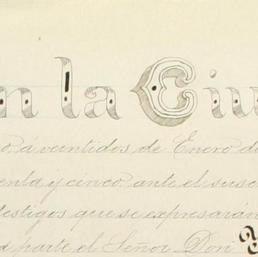 n la Ciu
o, á veintidos de Enero de
enta y cinco, ante el susc
testigos que se expresarán
a parte el Señor Don